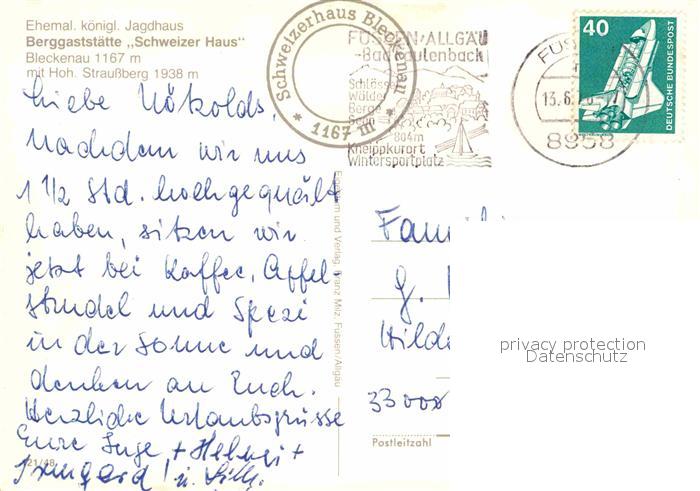 Ehemal. königl. Jagdhaus
Berggaststätte „Schweizer Haus“
Bleckenau 1167 m
mit Hoh. Straußberg 1938 m
Schweizerhaus Bleckenau
* 1167 m *
FÜSSEN/ALLGÄU
-Bad Faulenbach
Schlösser
Wälder
Berge
Seen
804m
Kneippkurort
Wintersportplatz
FÜSSEN
13.6.
8958
40
DEUTSCHE BUNDESPOST
Liebe
nachdem wir uns
1 1/2 Std. hochgequält
haben, sitzen wir
jetzt bei Kaffee, Apfel
strudel und Spezi
in der Sonne und
denken an Euch.
Herzliche Urlaubsgrüsse
Eure Inge + Helmi +
Irmgard u.
21/48
Eigentum und Verlag Franz Milz, Füssen/Allgäu
Fami
G.
Hilde
33
Postleitzahl
privacy protection
Datenschutz